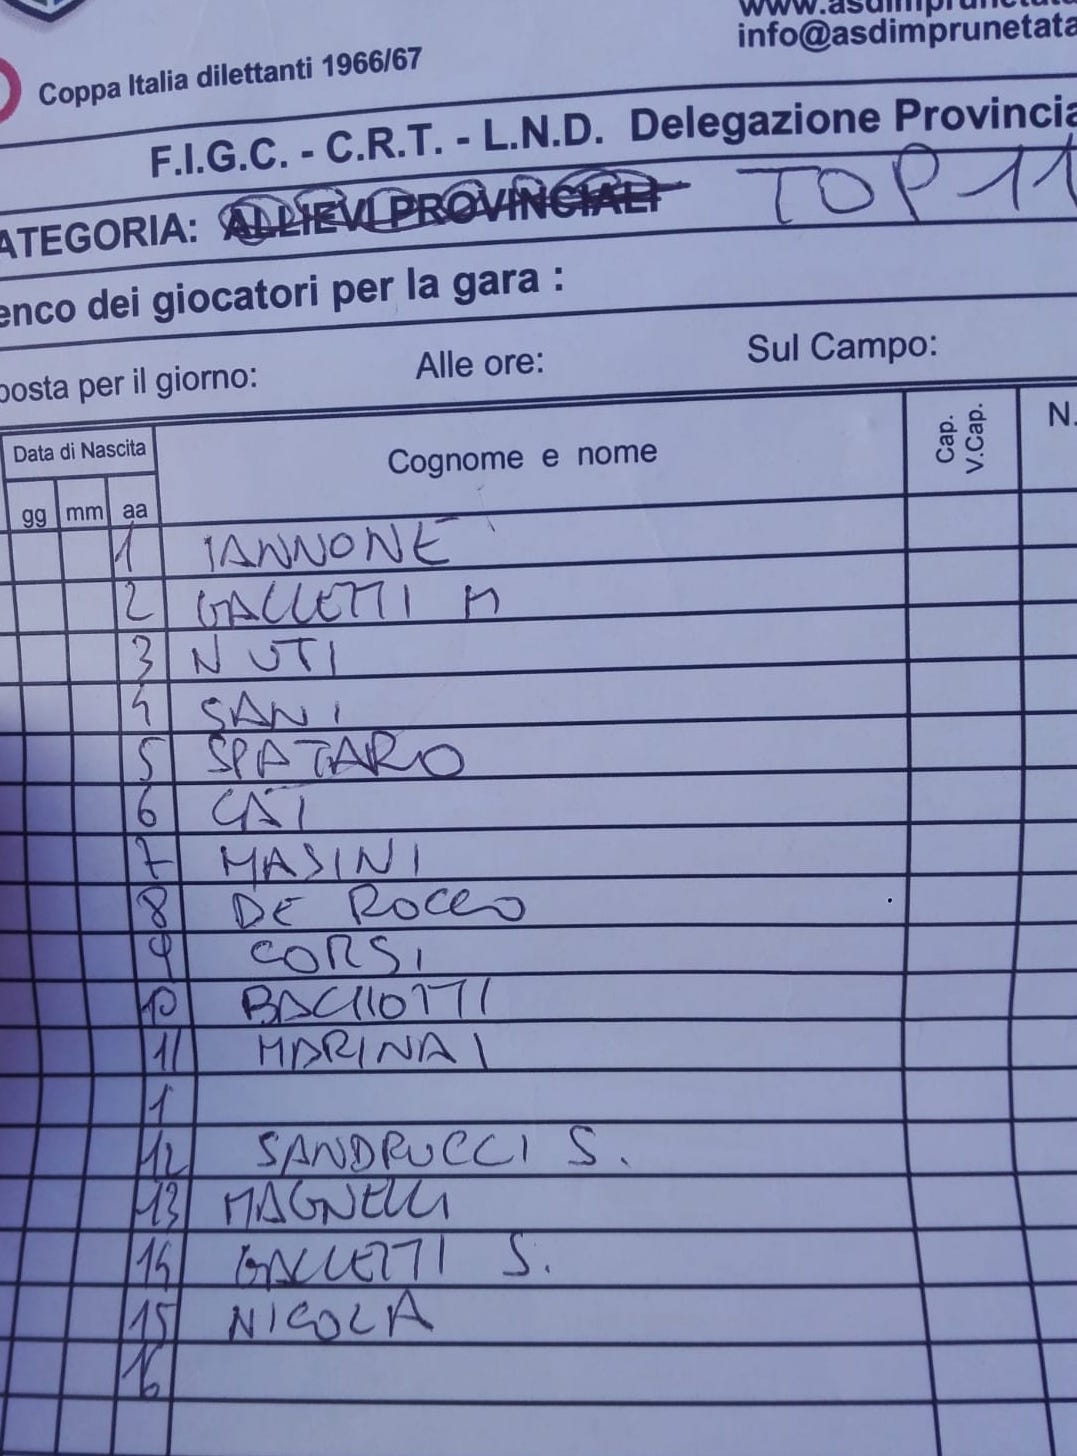 www.asdimprunetata
info@asdimprunetata
Coppa Italia dilettanti 1966/67
F.I.G.C. - C.R.T. - L.N.D. Delegazione Provincia
ATEGORIA: ALLIEVI PROVINCIALI TOP 11
enco dei giocatori per la gara :
posta per il giorno: Alle ore: Sul Campo:
Data di Nascita Cognome e nome Cap. V.Cap. N.
gg mm aa
1 IANNONE
2 GALLETTI M
3 NUTI
4 SANI
5 SPATARO
6 CAI
7 MASINI
8 DE ROCCO
9 CORSI
10 BAGLIOTTI
11 MARINAI
1
12 SANDRUCCI S.
13 MAGNELLI
14 GALLETTI S.
15 NICOLA
16